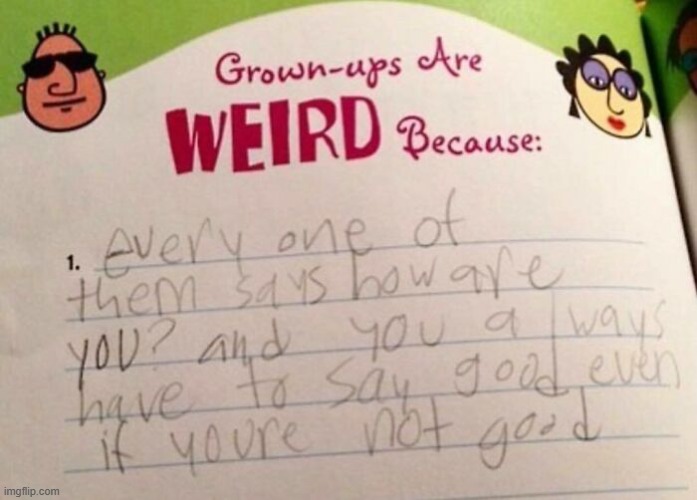 Grown-ups Are
WEIRD Because:
1. every one of
them says how are
you? and you always
have to say good even
if youre not good
imgflip.com